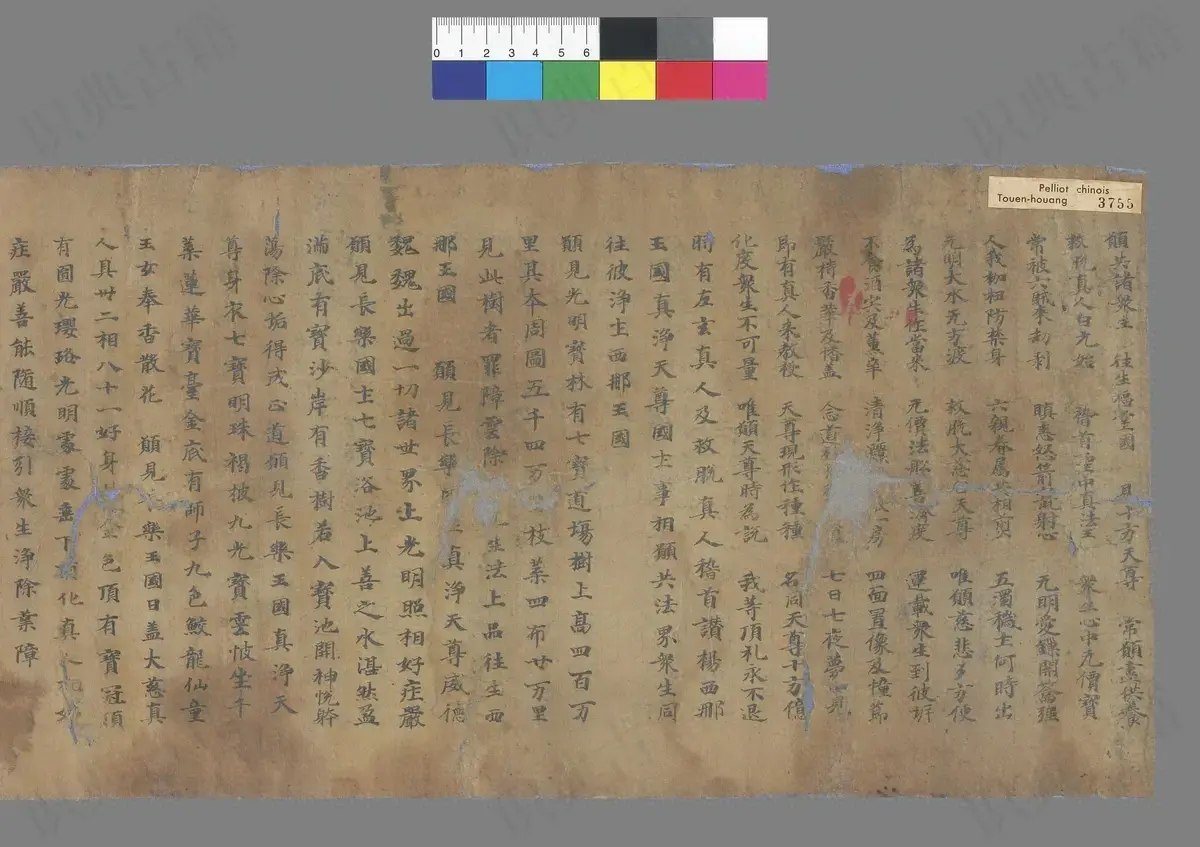 Pelliot chinois
Touen-houang 3755
0 1 2 3 4 5 6
願共諸衆生 往生 堂國 十方天尊 常願 供養
救脫真人白元始 稽首 中真法王 衆生心中无價寶
常被六賊來劫利 瞋恚怒箭 射心 无明愛鏁開
人我枷杻防禁身 六親眷属共相 五濁穢土何時出
无明大水无方渡 救脫大慈 天尊 唯願慈悲多方便
為諸衆生 當來 无價法船善濟度 運載衆生到彼岸
不 酒 及薫辛 清浄 一房 四面置像及幢節
嚴 香華及幡盖 念道 七日七夜夢
即有真人來教授 天尊現形作種種 名同天尊十方億
化度衆生不可量 唯願天尊時為説 我等頂礼永不退
時有左玄真人及救脫真人稽首讃楊西那
玉國真浄天尊國土事相願共法界衆生同
往彼浄土西那玉國
願見光明寳林有七寳道塲樹上髙四百万
里其本周圎五千四 枝葉四布廿万里
見此樹者罪障雲除 法上品往生西
那玉國 願見長樂 真浄天尊威德
巍巍出過一切諸世界上光明照相好庄嚴
願見長樂國土七寳浴池上善之水湛然盈
滿底有寳沙岸有香樹若入寳池開神悅
蕩除心垢得成正道願見長樂玉國真浄天
尊身衣七寳明珠褐披九光寳雲帔坐千
葉蓮華寳臺金底有師子九色 龍仙童
玉女奉香散花 願見 樂玉國日盖大慈真
人具卅二相八十一好身 金色頂有寳冠項
有圎光瓔珞光明 垂下 化真人
庄嚴善能隨順接引衆生浄除業障